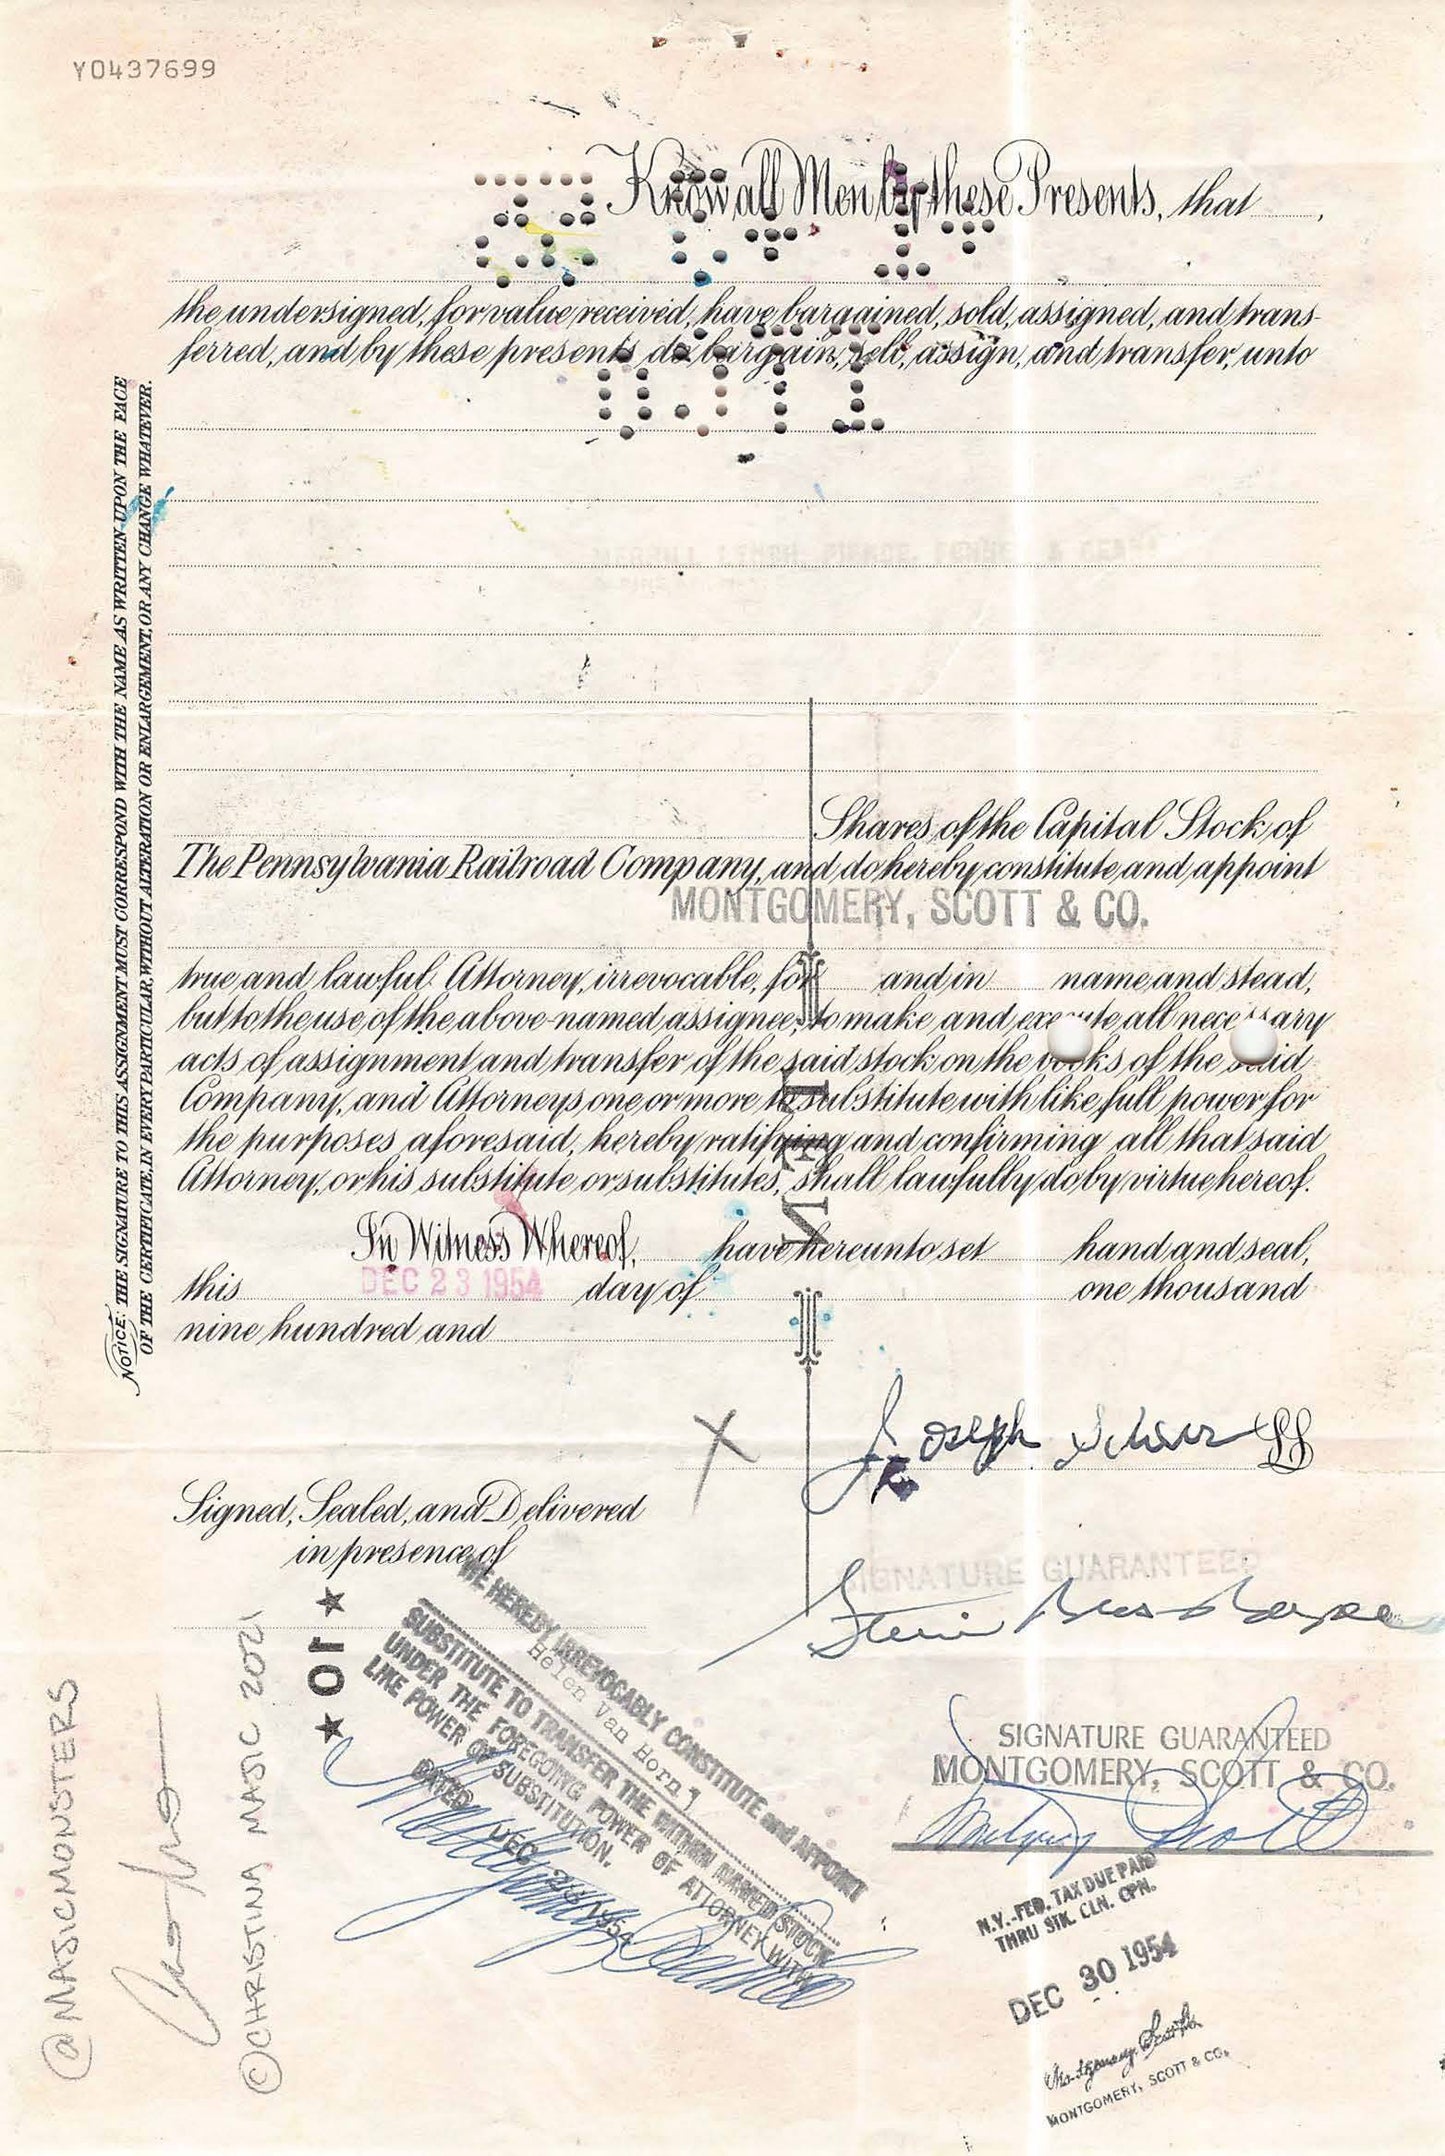 Y0437699
Know all Men by these Presents, that
the undersigned, for value received, have bargained, sold, assigned, and trans-
ferred, and by these presents do bargain, sell, assign, and transfer, unto
Shares of the Capital Stock of
The Pennsylvania Railroad Company, and do hereby constitute and appoint
MONTGOMERY, SCOTT & CO.
true and lawful Attorney, irrevocable, for and in name and stead,
but to the use of the above-named assignee, to make and execute all necessary
acts of assignment and transfer of the said stock on the books of the said
Company, and Attorneys one or more to substitute with like full power for
the purposes aforesaid, hereby ratifying and confirming all that said
Attorney, or his substitute or substitutes, shall lawfully do by virtue hereof.
In Witness Whereof, have hereunto set hand and seal,
this DEC 23 1954 day of one thousand
nine hundred and
TEN
X Joseph LS
Signed, Sealed, and Delivered
in presence of
SIGNATURE GUARANTEED
★ 10 ★
WE HEREBY IRREVOCABLY CONSTITUTE and APPOINT
Helen Van Horn
SUBSTITUTE TO TRANSFER THE WITHIN NAMED STOCK
UNDER THE FOREGOING POWER OF ATTORNEY WITH
LIKE POWER OF SUBSTITUTION.
DATED DEC 1954
SIGNATURE GUARANTEED
MONTGOMERY, SCOTT & CO.
Montgomery Scott
N.Y.-FED. TAX DUE PAID
THRU STK. CLN. CPN.
DEC 30 1954
Montgomery Scott Co.
MONTGOMERY, SCOTT & CO.
NOTICE: THE SIGNATURE TO THIS ASSIGNMENT MUST CORRESPOND WITH THE NAME AS WRITTEN UPON THE FACE
OF THE CERTIFICATE, IN EVERY PARTICULAR, WITHOUT ALTERATION OR ENLARGEMENT, OR ANY CHANGE WHATEVER.
@MAJICMONSTERS
©CHRISTINA MAJIC 2021